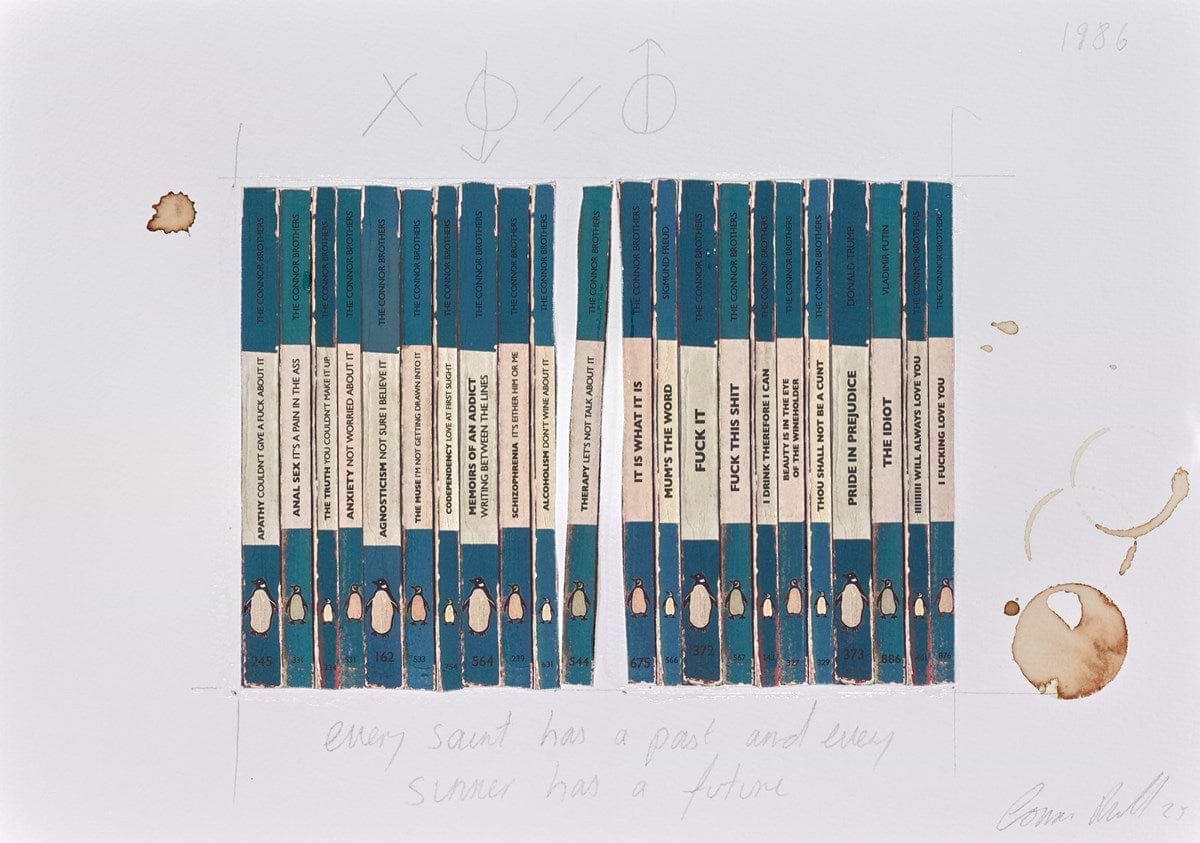 1986
THE CONNOR BROTHERS
APATHY COULDN'T GIVE A FUCK ABOUT IT
245
THE CONNOR BROTHERS
ANAL SEX IT'S A PAIN IN THE ASS
331
THE CONNOR BROTHERS
THE TRUTH YOU COULDN'T MAKE IT UP
334
THE CONNOR BROTHERS
ANXIETY NOT WORRIED ABOUT IT
THE CONNOR BROTHERS
AGNOSTICISM NOT SURE I BELIEVE IT
162
THE CONNOR BROTHERS
THE MUSE I'M NOT GETTING DRAWN INTO IT
533
THE CONNOR BROTHERS
CODEPENDENCY LOVE AT FIRST SLIGHT
754
THE CONNOR BROTHERS
MEMOIRS OF AN ADDICT
WRITING BETWEEN THE LINES
564
THE CONNOR BROTHERS
SCHIZOPHRENIA IT'S EITHER HIM OR ME
239
THE CONNOR BROTHERS
ALCOHOLISM DON'T WINE ABOUT IT
631
THE CONNOR BROTHERS
THERAPY LET'S NOT TALK ABOUT IT
544
THE CONNOR BROTHERS
IT IS WHAT IT IS
675
SIGMUND FREUD
MUM'S THE WORD
566
THE CONNOR BROTHERS
FUCK IT
372
THE CONNOR BROTHERS
FUCK THIS SHIT
567
THE CONNOR BROTHERS
I DRINK THEREFORE I CAN
THE CONNOR BROTHERS
BEAUTY IS IN THE EYE
OF THE WINEHOLDER
327
THE CONNOR BROTHERS
THOU SHALL NOT BE A CUNT
329
DONALD TRUMP
PRIDE IN PREJUDICE
373
VLADIMIR PUTIN
THE IDIOT
886
THE CONNOR BROTHERS
IIIIIIIII WILL ALWAYS LOVE YOU
THE CONNOR BROTHERS
I FUCKING LOVE YOU
876
every saint has a past and every
sinner has a future